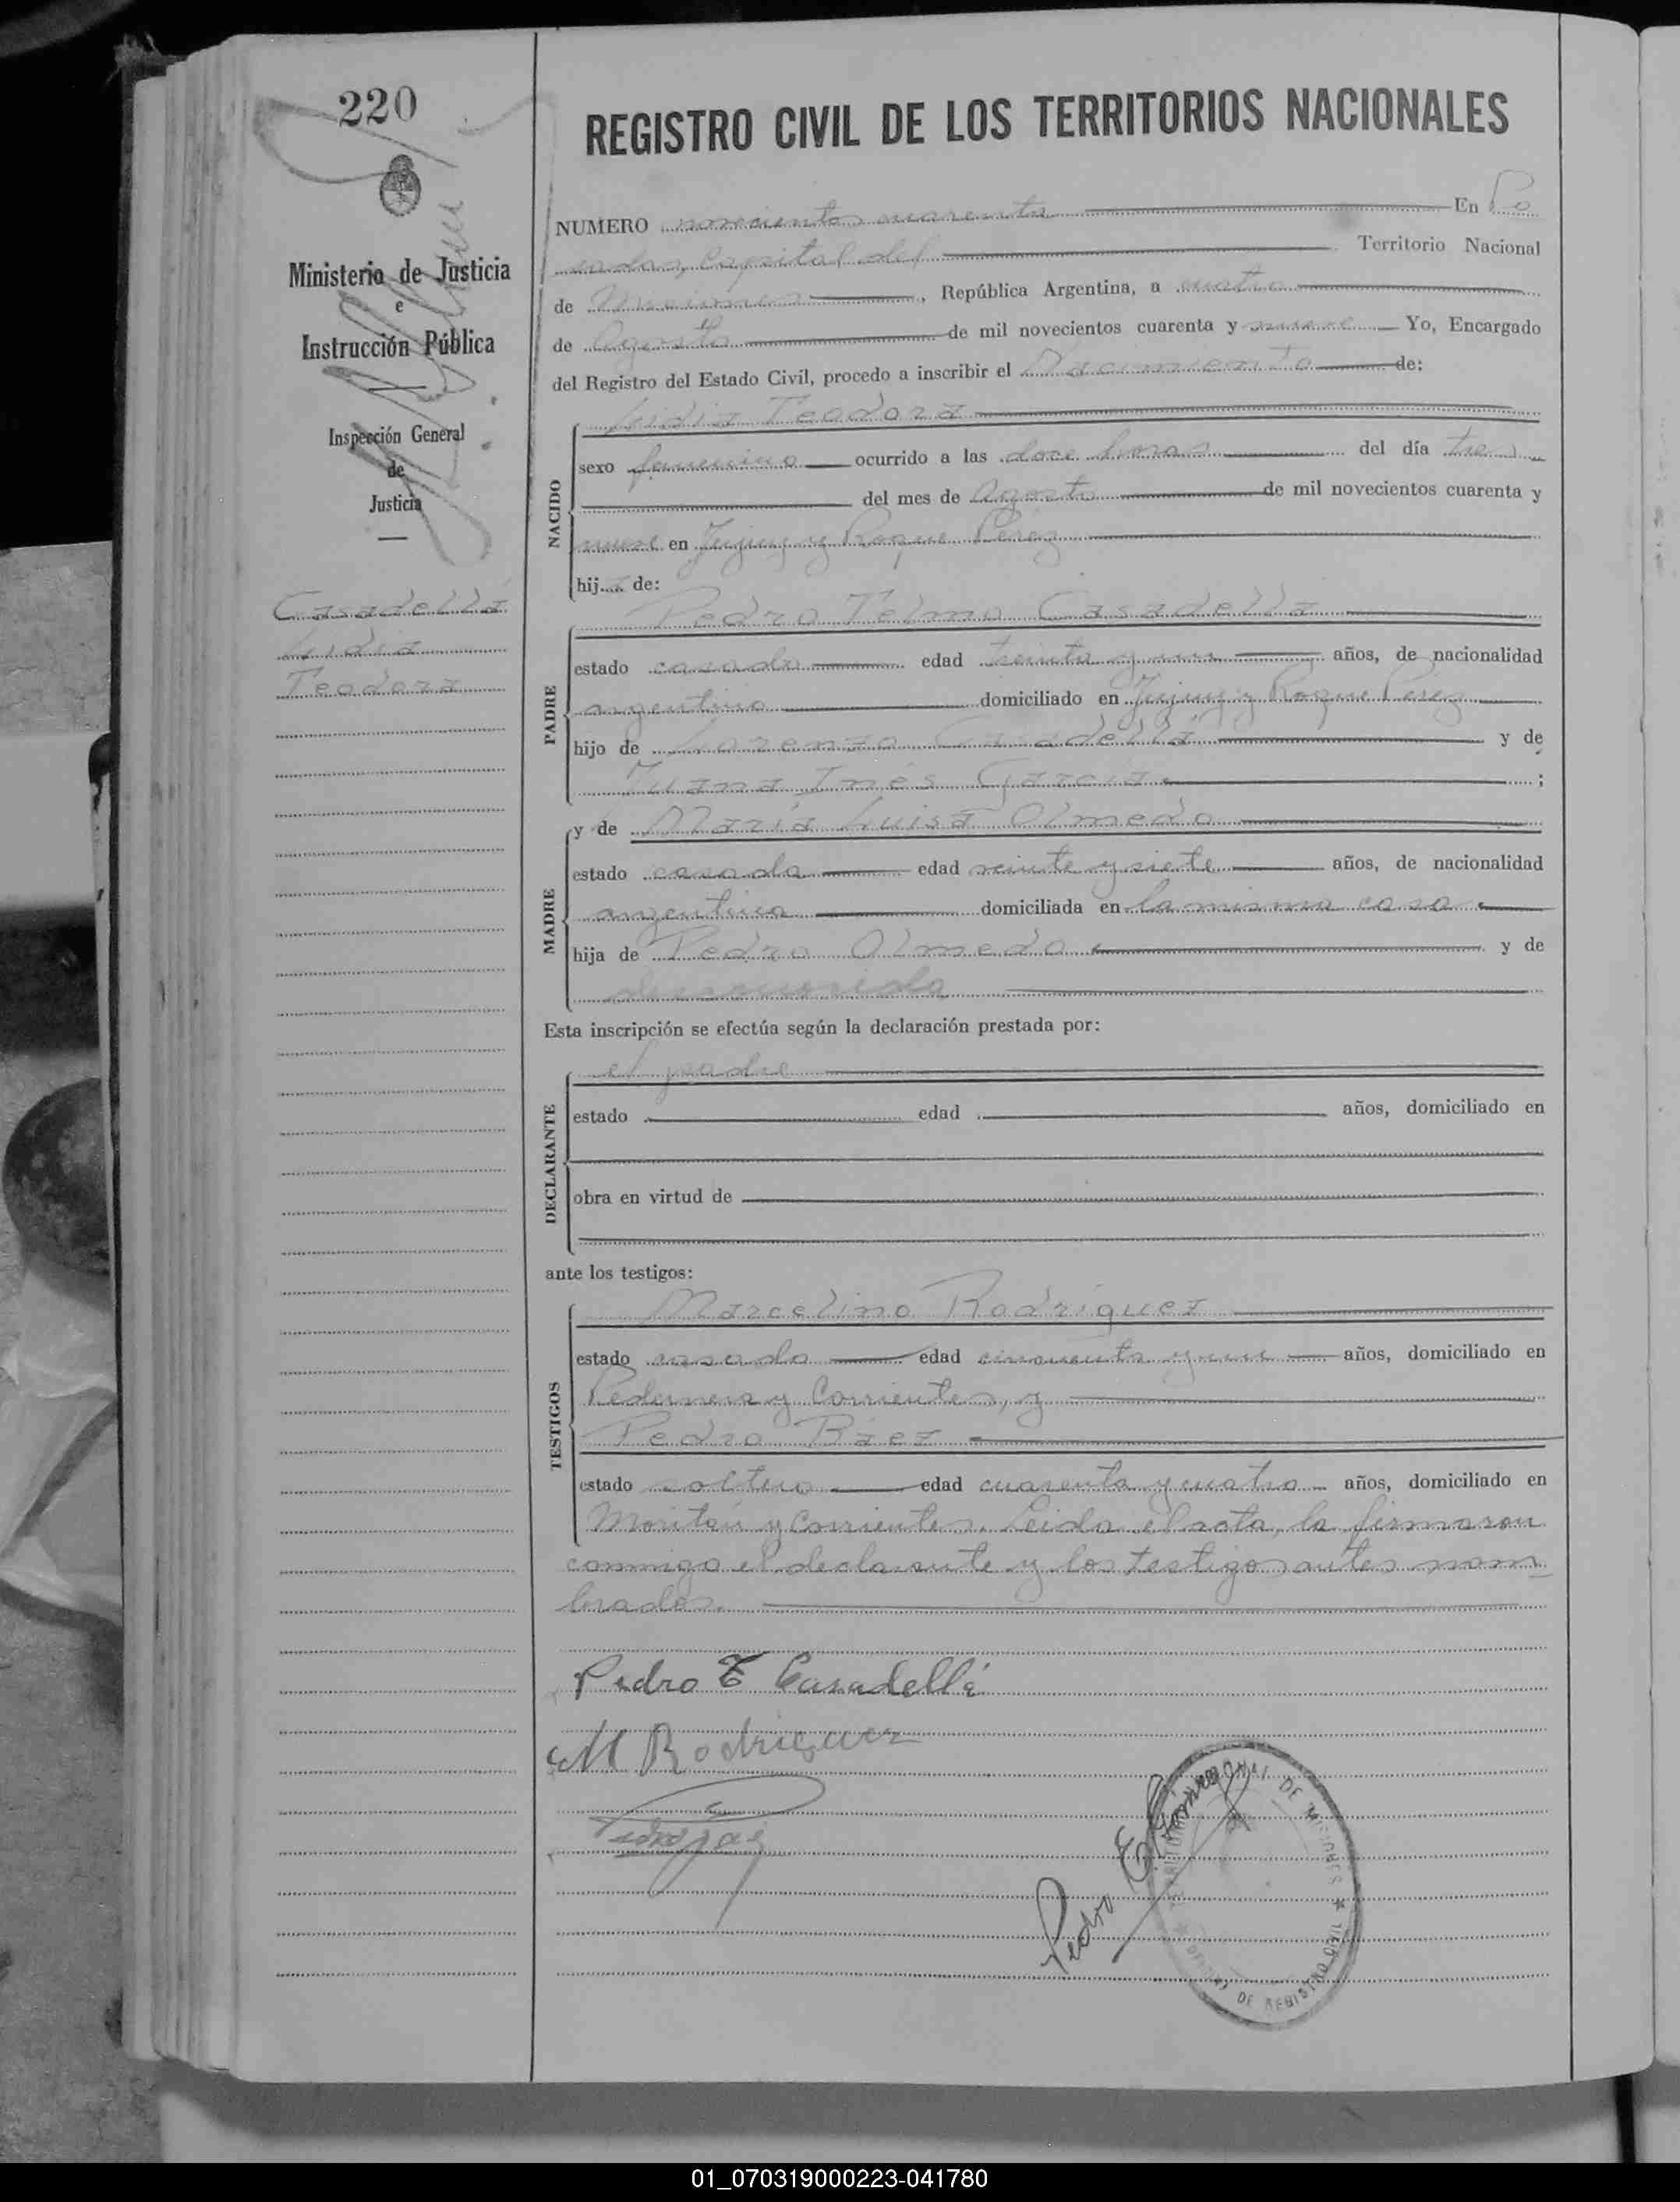 220
REGISTRO CIVIL DE LOS TERRITORIOS NACIONALES
Ministerio de Justicia
e
Instrucción Pública
Inspección General
de
Justicia
Casadellá
Lidia
Teodora
NUMERO novecientos cuarenta En Po
sadas, Capital del Territorio Nacional
de Misiones, República Argentina, a cuatro
de Agosto de mil novecientos cuarenta y nueve Yo, Encargado
del Registro del Estado Civil, procedo a inscribir el Nacimiento de:
NACIDO
Lidia Teodora
sexo femenino ocurrido a las doce horas del día tres
del mes de Agosto de mil novecientos cuarenta y
nueve en Jujuy y Roque Perez
hija de:
PADRE
Pedro Telmo Casadellá
estado casado edad treinta y un años, de nacionalidad
argentino domiciliado en Jujuy y Roque Perez
hijo de Lorenzo Casadellá y de
Juana Inés García;
MADRE
y de María Luisa Olmedo
estado casada edad veinte y siete años, de nacionalidad
argentina domiciliada en la misma casa
hija de Pedro Olmedo y de
desconocida
Esta inscripción se efectúa según la declaración prestada por:
DECLARANTE
el padre
estado edad años, domiciliado en
obra en virtud de
ante los testigos:
TESTIGOS
Marcelino Rodríguez
estado casado edad cincuenta y un años, domiciliado en
Pedernera y Corrientes, y
Pedro Báez
estado soltero edad cuarenta y cuatro años, domiciliado en
y Corrientes. Leida el acta, la firmaron
conmigo el declarante y los testigos antes nom
brados.
Pedro T Casadellá
M Rodriguez
Pedro E.
DE MISIONES
DE REGISTRO CIVIL
01_070319000223-041780